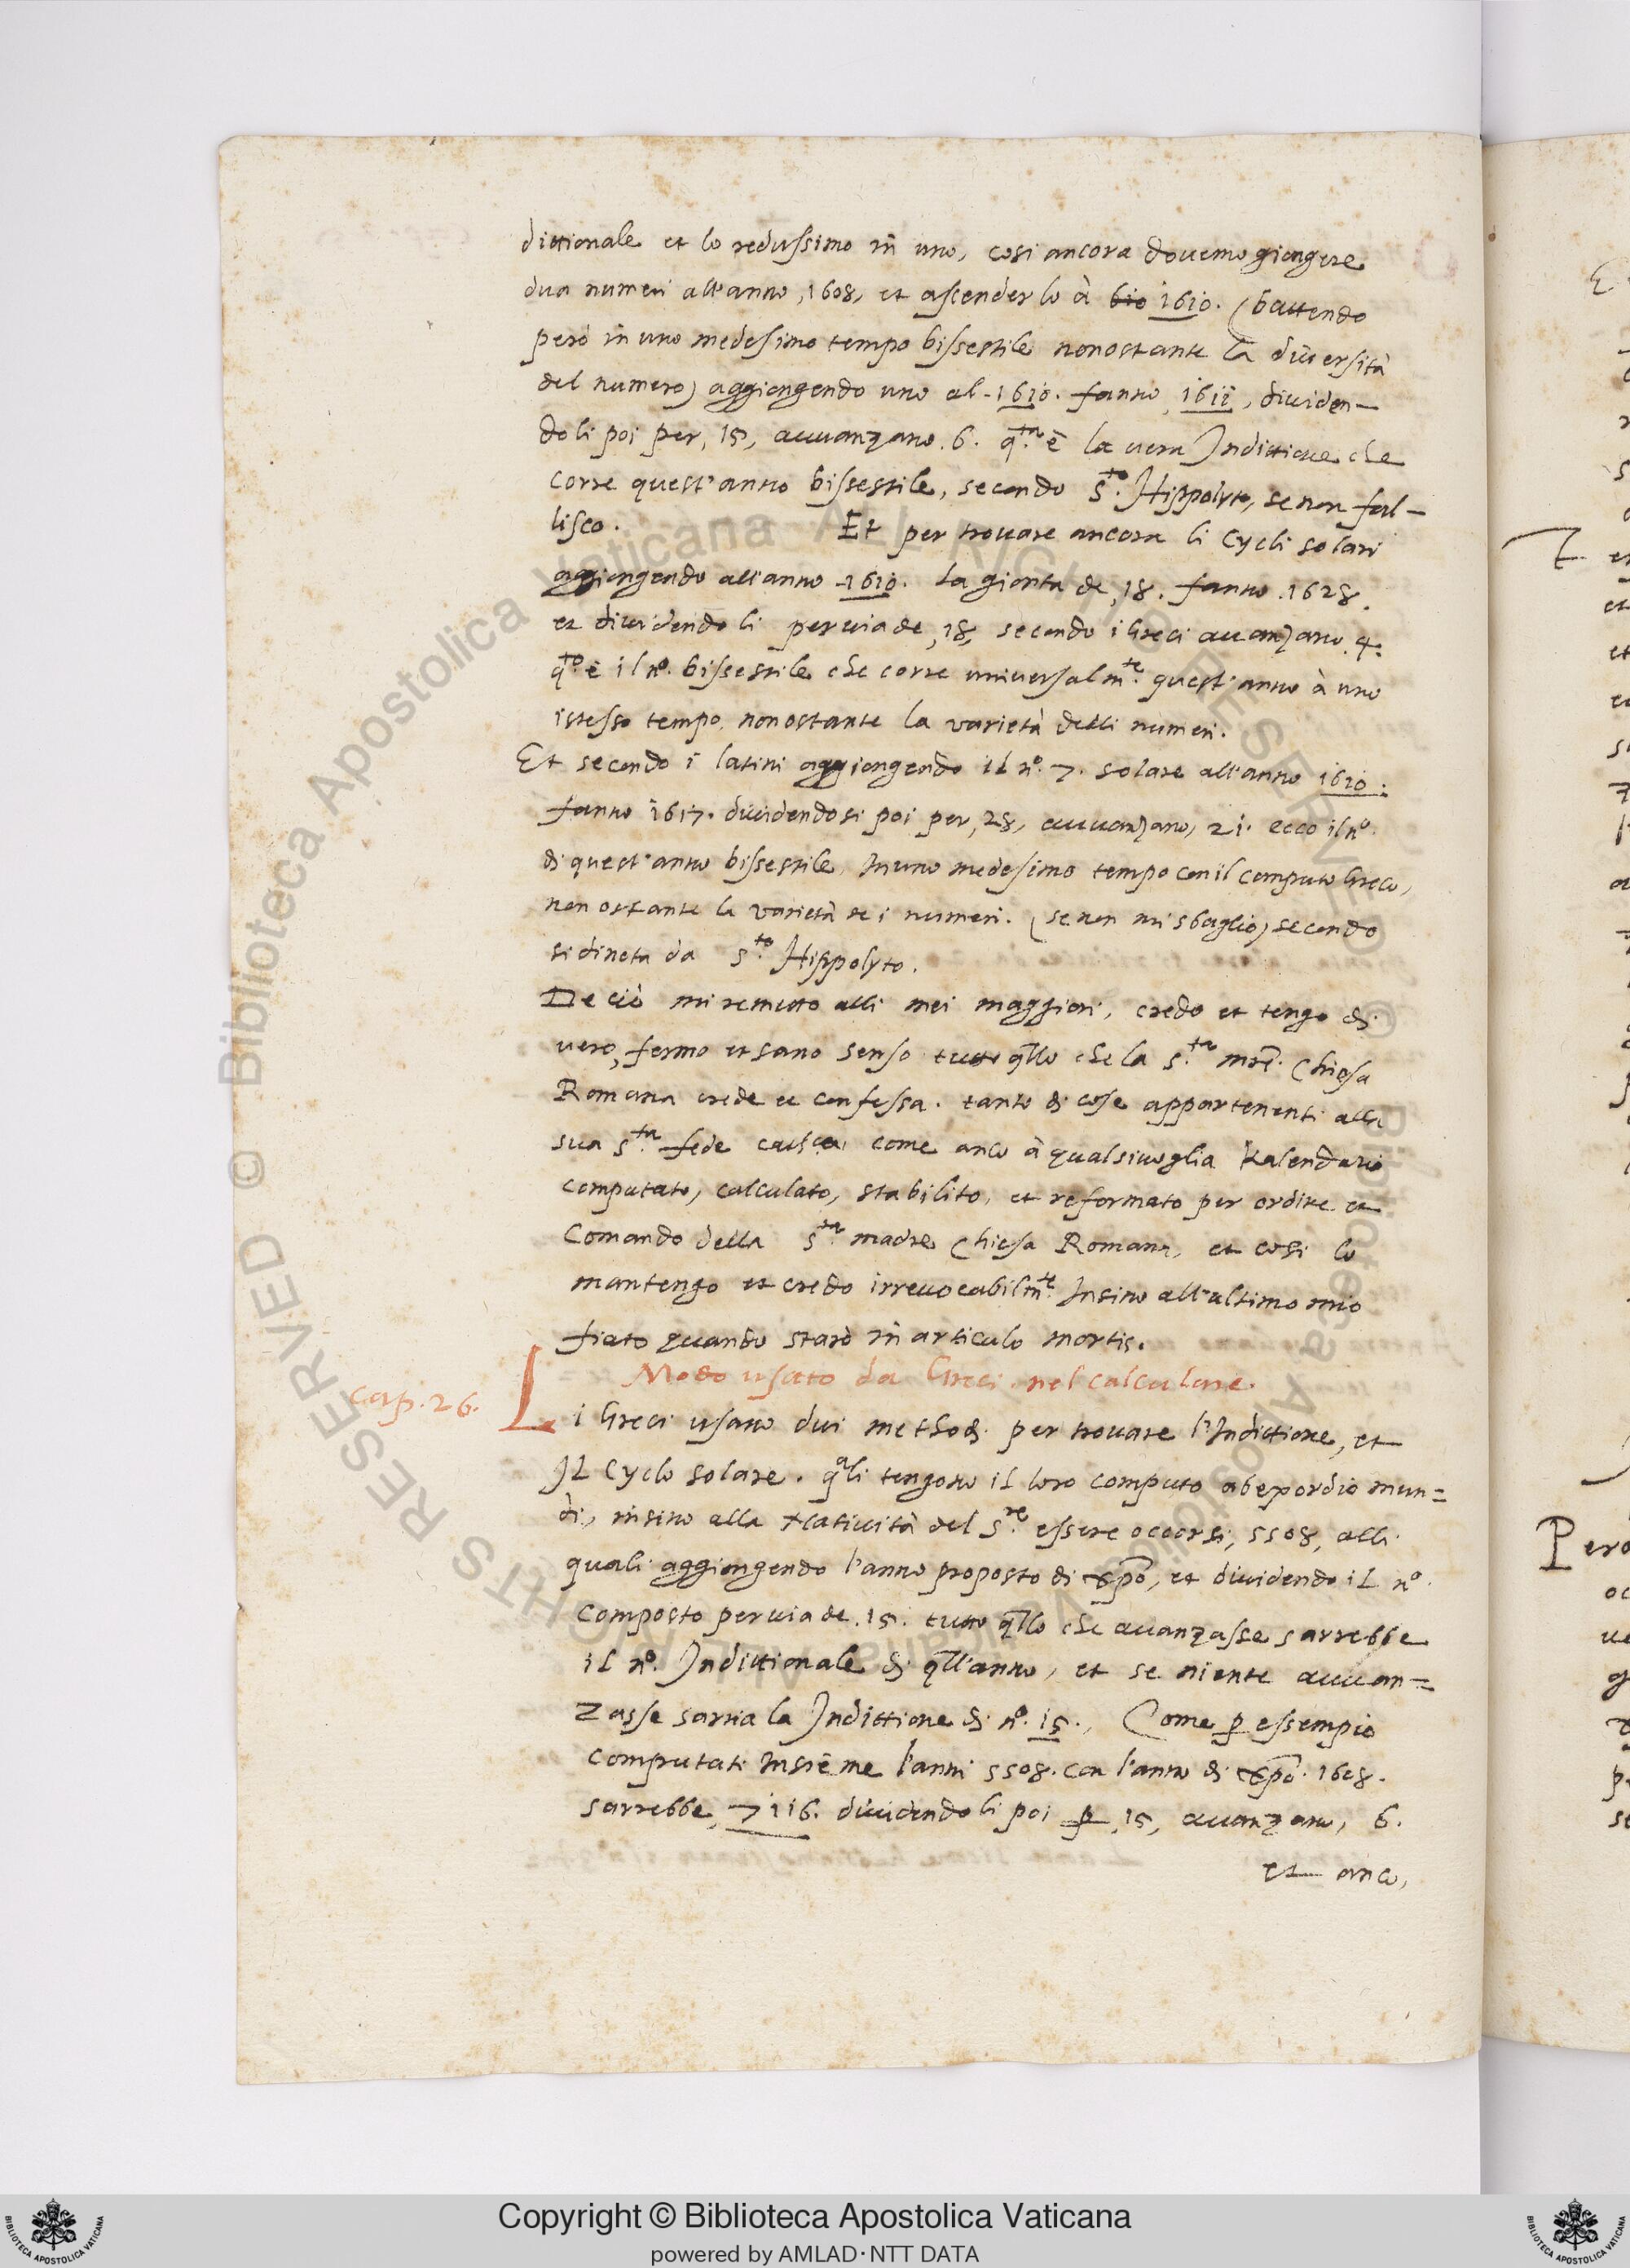 dittionale et lo redussimo in uno, cosi ancora douemo giongere
dua numeri all'anno, 1608, et ascenderlo à 610 1610. (battendo
però in uno medesimo tempo bissestile nonostante la diuersità
del numero) aggiongendo uno al 1610. fanno 1611, diuiden-
doli poi per, 15, auuanzano. 6. q.ta è la uera Indittione che
corre quest'anno bissestile, secondo S.to Hippolyto, se non fal-
lisco. Et per trouare ancora li Cycli solari
aggiongendo all'anno 1610. la gionta de, 18. fanno. 1628.
et diuidendoli per uia de, 18, secondo i Greci auanzano. 4.
q.to è il n.o bissestile che corre uniuersalm.te quest'anno à uno
istesso tempo, nonostante la varietà delli numeri.
Et secondo i latini aggiongendo il n.o 7. solare all'anno 1610.
fanno 1617. diuidendosi poi per, 28, auuanzano, 21. ecco il n.o
di quest'anno bissestile, In uno medesimo tempo con il computo Greco,
non ostante la varietà de i numeri. (se non mi sbaglio) secondo
si dinota da S.to Hippolyto.
De ciò mi remetto alli mei maggiori, credo et tengo di
uero, fermo et sano senso tutto q̄llo che la S.ta mr̄e. Chiesa
Romana crede et confessa. tanto di cose appartenenti alla
sua S.ta fede come anco à qualsiuoglia Kalendario
computato, calculato, stabilito, et reformato per ordine et
Comando della S.ta madre Chiesa Romana, et cosi lo
mantengo et credo irreuocabilm.te Insino all'ultimo mio
fiato quando starò in articulo mortis.
Modo usato da Greci nel calculare.
cap. 26.
Li Greci usano dui methodi per trouare l'Indittione, et
Il Cyclo solare. q.ali tengono il loro computo ab expordio mun=
di, insino alla Natiuità del S.re essere occorsi, 5508, alli
quali aggiongendo l'anno proposto di xp̄o, et diuidendo il n.o
composto per uia de. 15. tutto q̄llo che auanzasse sarrebbe
il n.o Indittionale di q̄ll'anno, et se niente auuan=
zasse sarria la Indittione di n.o 15., Come p̱ essempio
computati Insieme l'anni 5508. con l'anno di xp̄o. 1608.
sarrebbe, 7116. diuidendoli poi p̱, 15, auanzano, 6.
et anco,
Copyright © Biblioteca Apostolica Vaticana
powered by AMLAD·NTT DATA